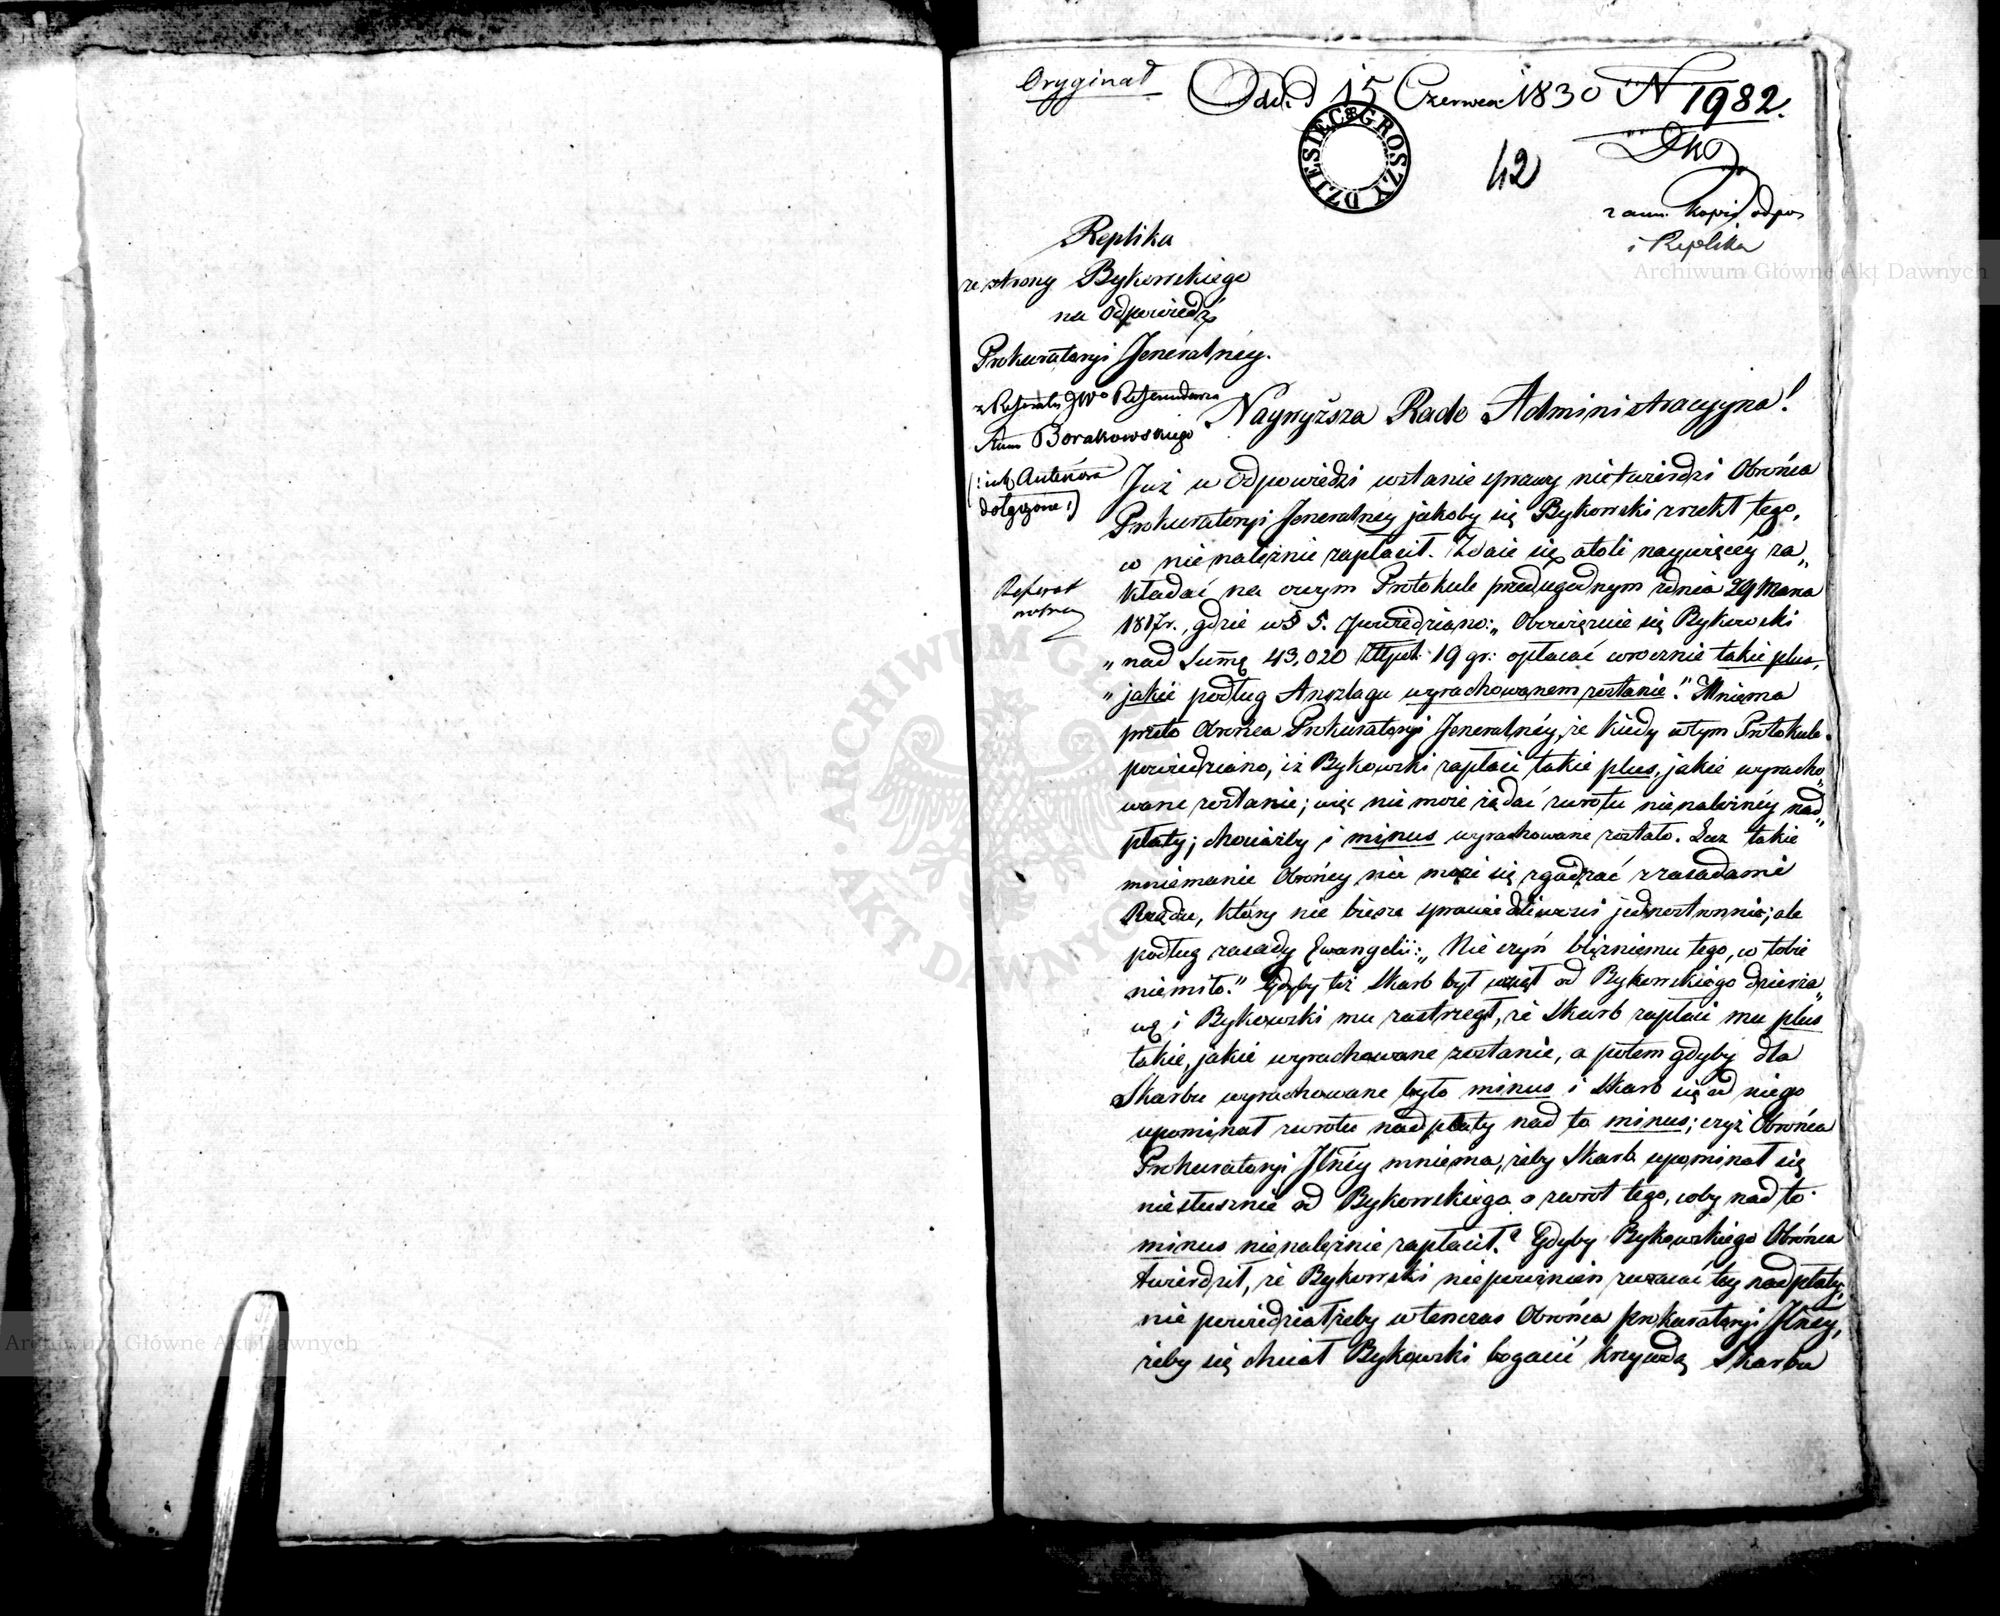 Oryginał
Odd. d 15 Czerwca 1830 N 1982.
DZIESIĘC GROSZY
42
z ann. kopią odpo
i Repliką
Replika
ze strony Bykowskiego
na Odpowiedź
Prokuratoryi Jeneralnéy.
z Referatu JWo Referendarza
Stanu Borakowskiego
(: utę Anteriora
dołączone :)
Referat
Naywyższa Rado Administracyyna!
Już w Odpowiedzi wstanie sprawy nietwierdzi Obrońca
Prokuratoryi Jeneralnéy jakoby się Bykowski zrzekł tego,
co nienależnie zapłacił. Zdaie się atoli naywięcéy za„
kładać na owym Protokule przedugodnym zdnia 29 Marca
1817r., gdzie w § 5. powiedziano: „Obowiązuie się Bykowski
„nad Summę 43,020 Złtpol: 19 gr: opłacać corocznie takie plus,
„jakie podług Anszlagu wyrachowanem zostanie." Mniema
przeto Obrońca Prokuratoryi Jeneralnéy, że kiedy wtym Protokule
powiedziano, iż Bykowski zapłaci takie plus, jakie wyracho„
wane zostanie; więc nie może żądać zwrotu nienależnéy nad„
płaty; chociażby i minus wyrachowane zostało. Lecz takie
mniemanie Obrońcy nie może się zgadzać z zasadami
Rządu, który nie bierze sprawiedliwości jednostronnie; ale
podług zasady Ewangelii: „Nie czyń bliźniemu tego, co tobie
niemiło." Gdyby też Skarb był wziął od Bykowskiego dzierża„
wę i Bykowski mu zastrzegł, że Skarb zapłaci mu plus
takie, jakie wyrachowane zostanie, a potem gdyby dla
Skarbu wyrachowane było minus i Skarb się od niego
upominał zwrotu nadpłaty nad to minus; czyż Obrońca
Prokuratoryi Jlnéy mniema, żeby Skarb upominał się
niesłusznie od Bykowskiego o zwrot tego, coby nad to
minus nienależnie zapłacił? Gdyby Bykowskiego Obrońca
twierdził, że Bykowski niepowinien zwracać téy nadpłaty,
nie powiedziałżeby wtenczas Obrońca Prokuratoryi Jlnéy,
żeby się chciał Bykowski bogacić krzywdą Skarbu
Archiwum Główne Akt Dawnych
Archiwum Główne Akt Dawnych
ARCHIWUM GŁÓWNE AKT DAWNYCH